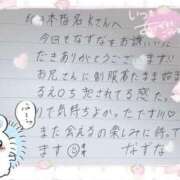 いつも
本指名Kさんへ
今日もなずなをお誘いいた
だきありがとうございます!!
お兄さんに制服着たまま
えっちされてる感
で気持ちよかったです!!!
また会えるの楽しみに待って
ます
なずな